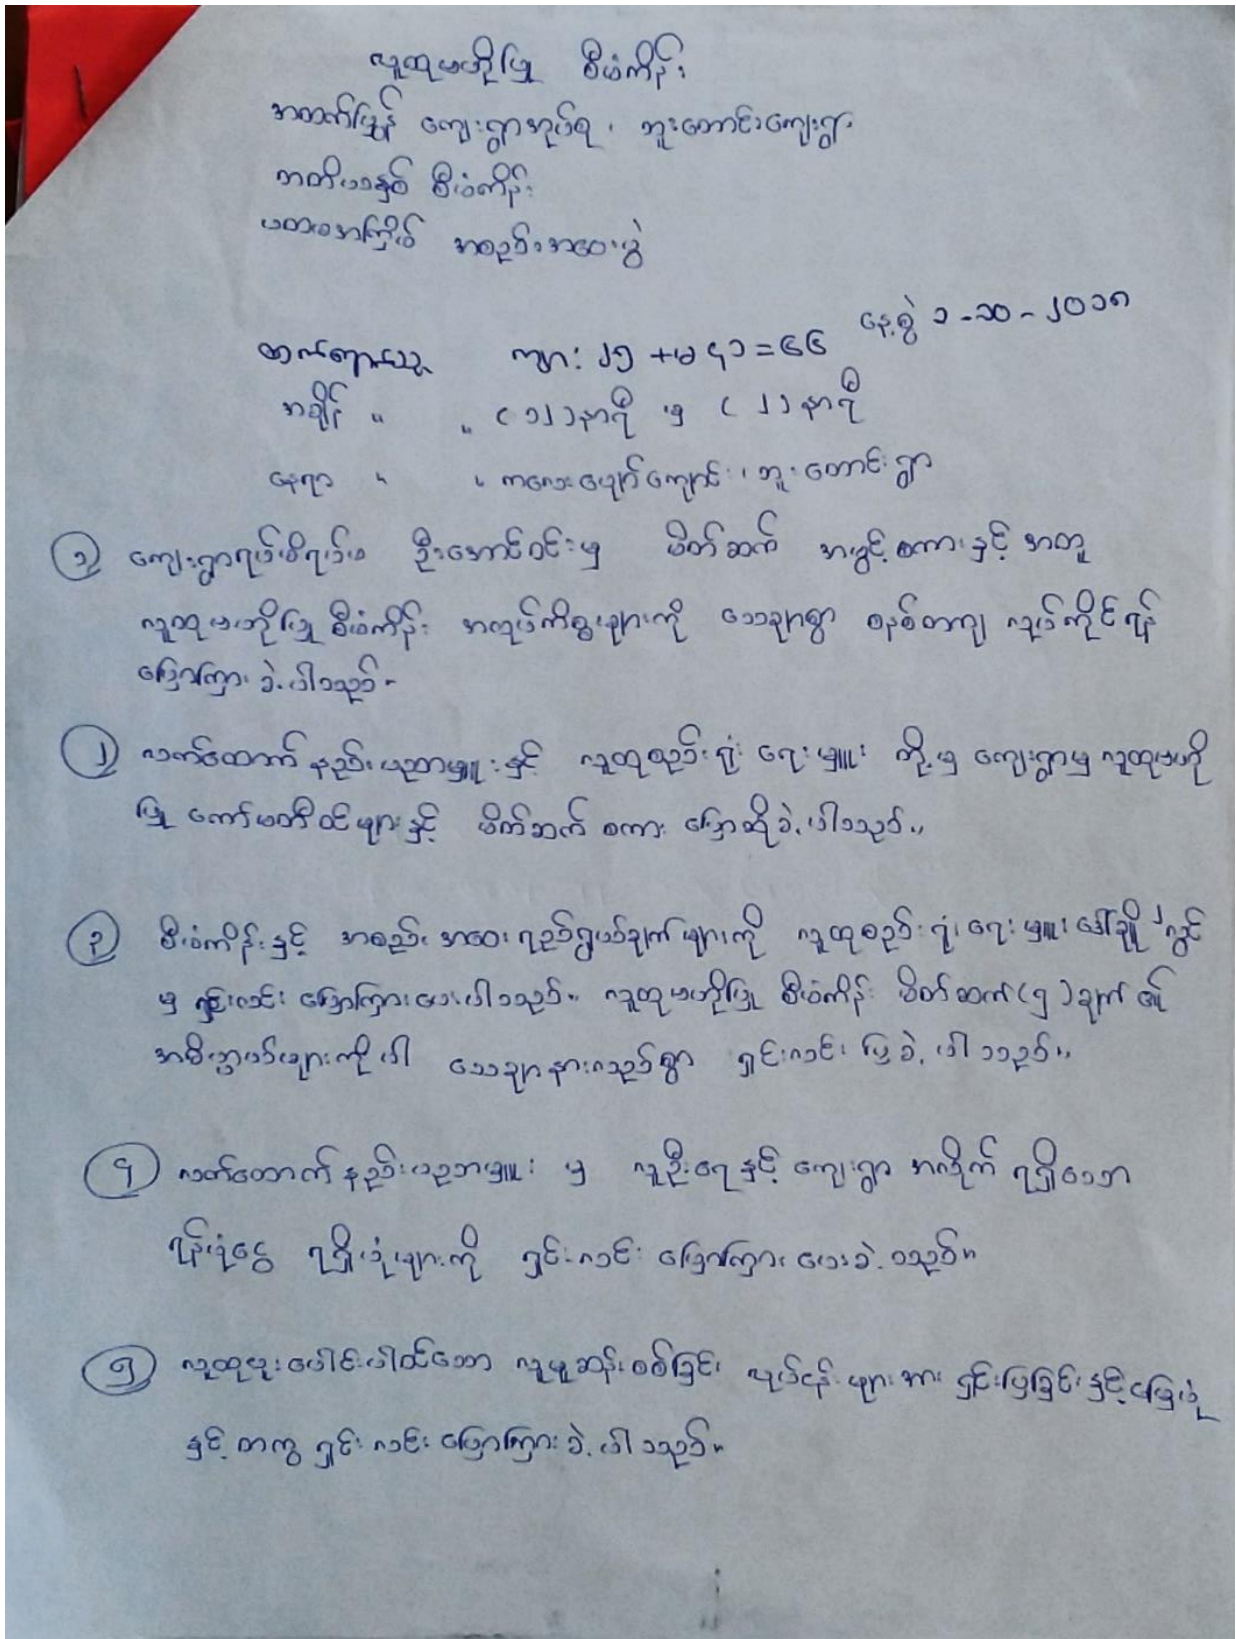 လူထုဗဟိုပြု စီမံကိန်း
အထက်ပြွန် ကျေးရွာအုပ်စု ၊ ဘူးတောင်းကျေးရွာ
တတိယနှစ် စီမံကိန်း
ပထမအကြိမ် အစည်းအဝေးပွဲ
နေ့စွဲ ၁-၁၀-၂၀၁၈
တက်ရောက်သူ ကျား ၂၅ + မ ၄၁ = ၆၆
အချိန် " " (၁၂) နာရီ မှ (၂) နာရီ
နေရာ " " ကလေးပျော်ကျောင်း ၊ ဘူးတောင်းရွာ
၁ ကျေးရွာရပ်မိရပ်ဖ ဦးအောင်ဝင်းမှ မိတ်ဆက် အဖွင့်စကားနှင့် အတူ
လူထုဗဟိုပြု စီမံကိန်း အလုပ်ကိစ္စများကို သေချာစွာ စနစ်တကျ လုပ်ကိုင်ရန်
ပြောကြားခဲ့ပါသည်။
၂ လက်ထောက်နည်းပညာမှူးနှင့် လူထုစည်းရုံးရေးမှူး တို့မှ ကျေးရွာမှ လူထုဗဟို
ပြု ကော်မတီဝင်များနှင့် မိတ်ဆက်စကား ပြောဆိုခဲ့ပါသည်။
၃ စီမံကိန်းနှင့် အစည်းအဝေး ရည်ရွယ်ချက်များကို လူထုစည်းရုံးရေးမှူး ဒေါ်ချိုချိုလွင်
မှ ရှင်းလင်း ပြောကြားပေးပါသည်။ လူထုဗဟိုပြု စီမံကိန်း မိတ်ဆက် (၅) ချက်
အဓိပ္ပာယ်များကိုပါ သေချာနားလည်စွာ ရှင်းလင်းပြခဲ့ပါသည်။
၄ လက်ထောက်နည်းပညာမှူး မှ လူဦးရေနှင့် ကျေးရွာ အလိုက် ရရှိသော
ရန်ပုံငွေ ရရှိပုံများကို ရှင်းလင်း ပြောကြားပေးခဲ့သည်။
၅ လူထုပူးပေါင်းပါဝင်သော လူမှုဆန်းစစ်ခြင်း လုပ်ငန်းများအား ရှင်းပြခြင်းနှင့် မြေပုံ
နှင့်တကွ ရှင်းလင်းပြောကြားခဲ့ပါသည်။